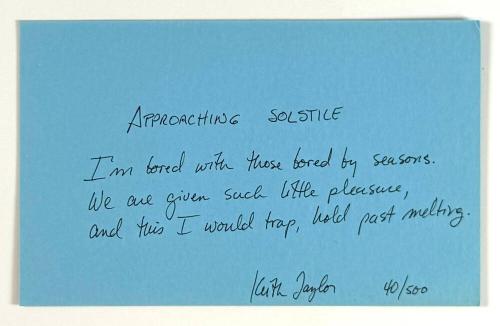 APPROACHING SOLSTICE
I'm bored with those bored by seasons.
We are given such little pleasure,
and this I would trap, hold past melting.
Keith Taylor 40/500